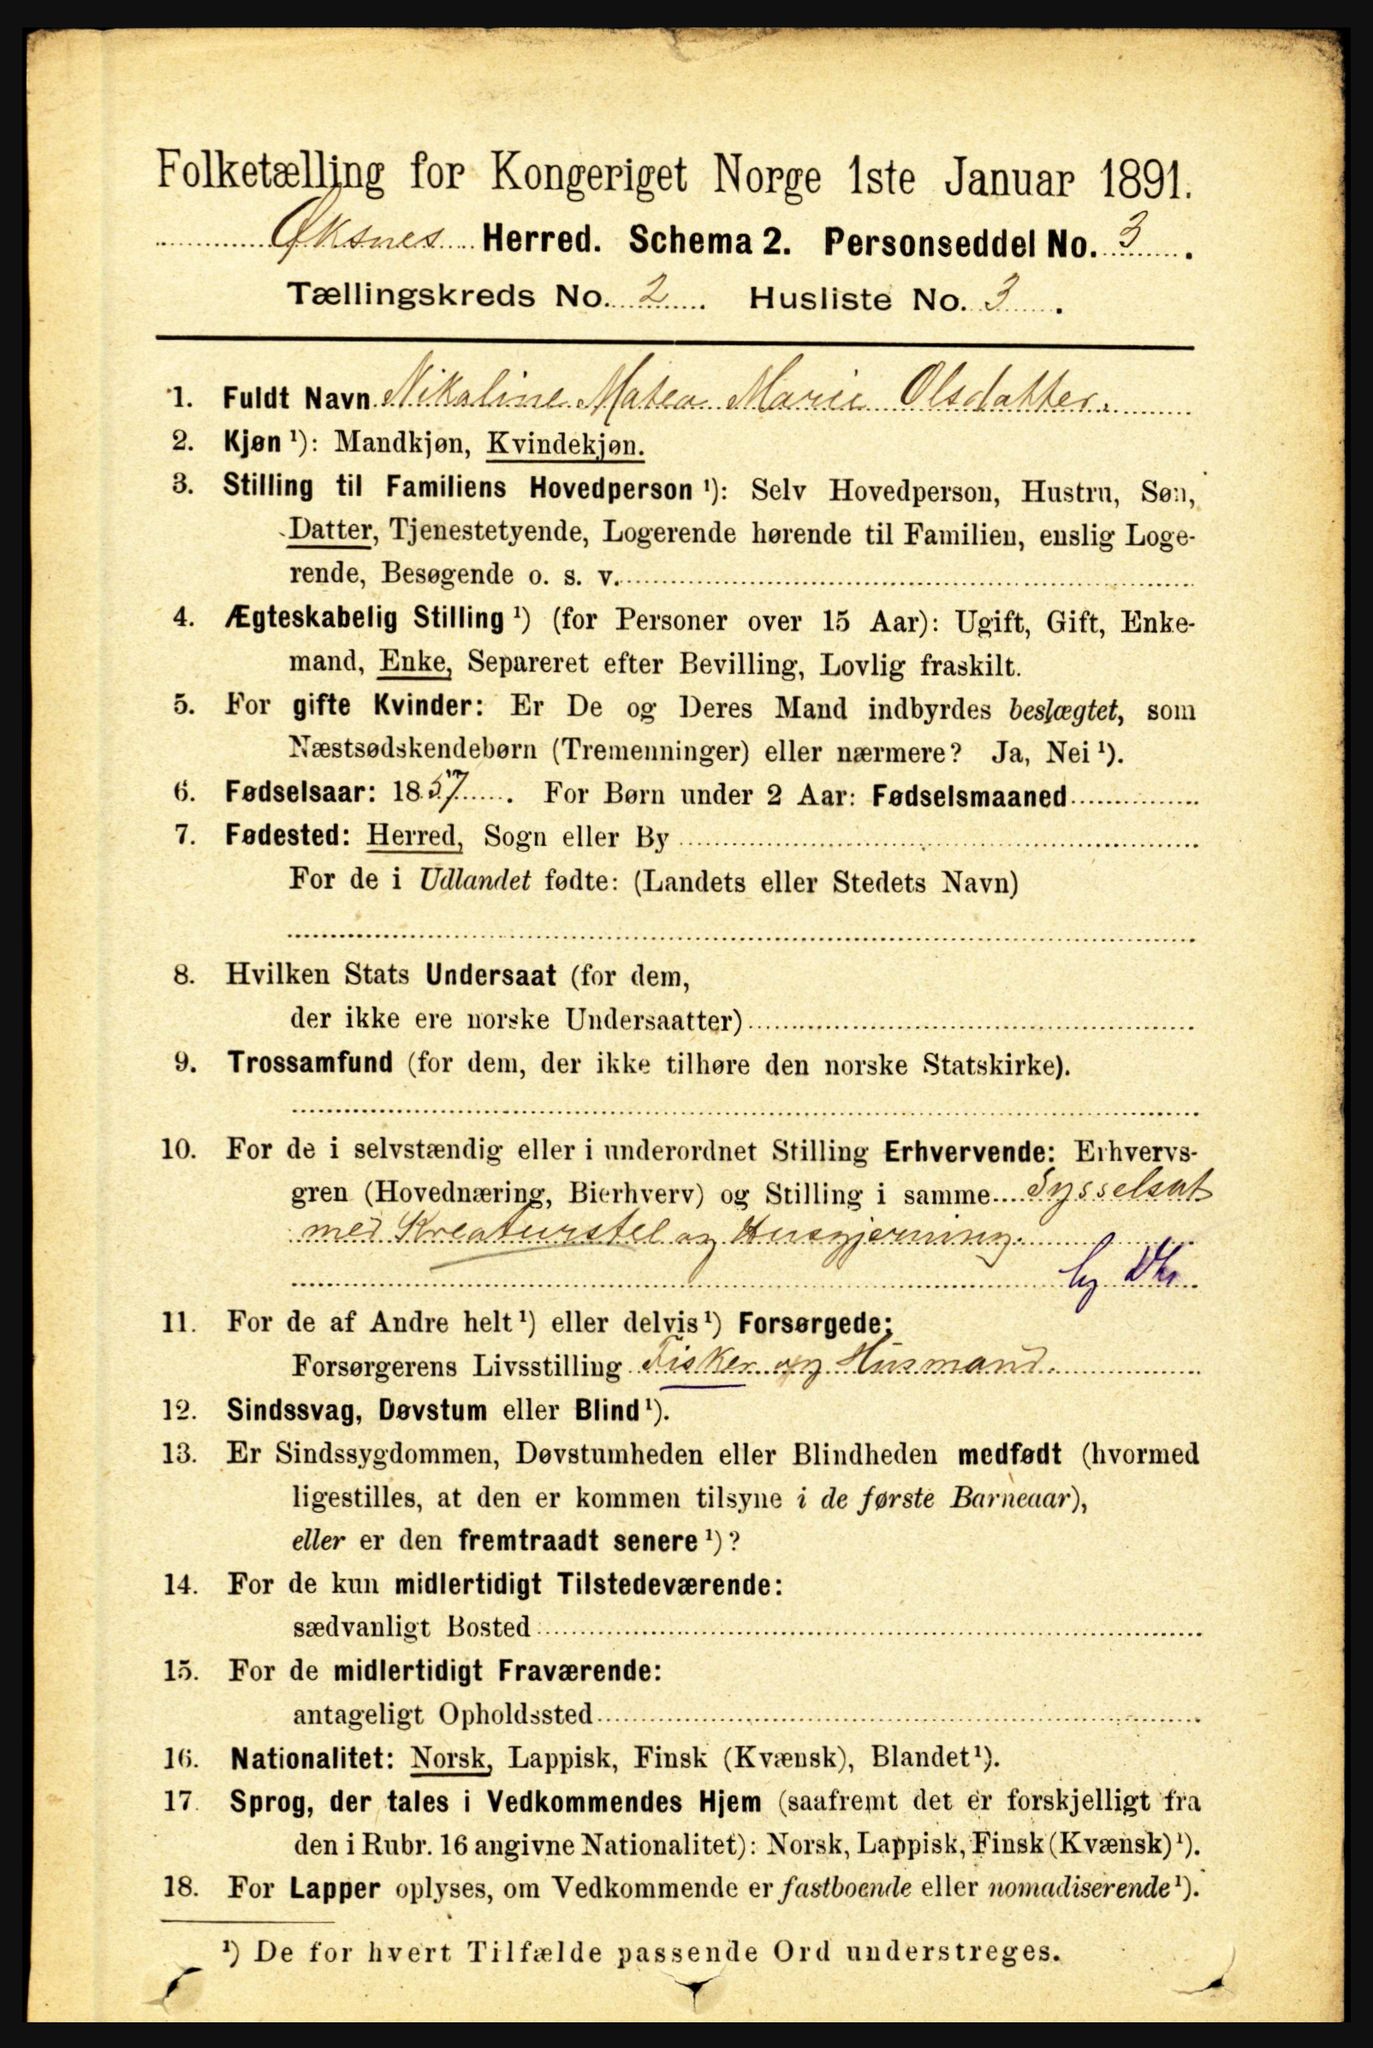 Folketælling for Kongeriget Norge 1ste Januar 1891.
Øksnes Herred. Schema 2. Personseddel No. 3.
Tællingskreds No. 2. Husliste No. 3.
1. Fuldt Navn Nikoline Matea Marie Olsdatter.
2. Kjøn ¹): Mandkjøn, Kvindekjøn.
3. Stilling til Familiens Hovedperson ¹): Selv Hovedperson, Hustru, Søn,
Datter, Tjenestetyende, Logerende hørende til Familien, enslig Loge-
rende, Besøgende o. s. v.
4. Ægteskabelig Stilling ¹) (for Personer over 15 Aar): Ugift, Gift, Enke-
mand, Enke, Separeret efter Bevilling, Lovlig fraskilt.
5. For gifte Kvinder: Er De og Deres Mand indbyrdes beslægtet, som
Næstsødskendebørn (Tremenninger) eller nærmere? Ja, Nei ¹).
6. Fødselsaar: 1857. For Børn under 2 Aar: Fødselsmaaned
7. Fødested: Herred, Sogn eller By
For de i Udlandet fødte: (Landets eller Stedets Navn)
8. Hvilken Stats Undersaat (for dem,
der ikke ere norske Undersaatter)
9. Trossamfund (for dem, der ikke tilhøre den norske Statskirke).
10. For de i selvstændig eller i underordnet Stilling Erhvervende: Erhvervs-
gren (Hovednæring, Bierhverv) og Stilling i samme Sysselsat
med Kreaturstel og Husgjerning.
11. For de af Andre helt ¹) eller delvis ¹) Forsørgede:
Forsørgerens Livsstilling Fisker og Husmand.
12. Sindssvag, Døvstum eller Blind ¹).
13. Er Sindssygdommen, Døvstumheden eller Blindheden medfødt (hvormed
ligestilles, at den er kommen tilsyne i de første Barneaar),
eller er den fremtraadt senere ¹)?
14. For de kun midlertidigt Tilstedeværende:
sædvanligt Bosted
15. For de midlertidigt Fraværende:
antageligt Opholdssted
16. Nationalitet: Norsk, Lappisk, Finsk (Kvænsk), Blandet ¹).
17 Sprog, der tales i Vedkommendes Hjem (saafremt det er forskjelligt fra
den i Rubr. 16 angivne Nationalitet): Norsk, Lappisk, Finsk (Kvænsk) ¹).
18. For Lapper oplyses, om Vedkommende er fastboende eller nomadiserende ¹).
¹) De for hvert Tilfælde passende Ord understreges.